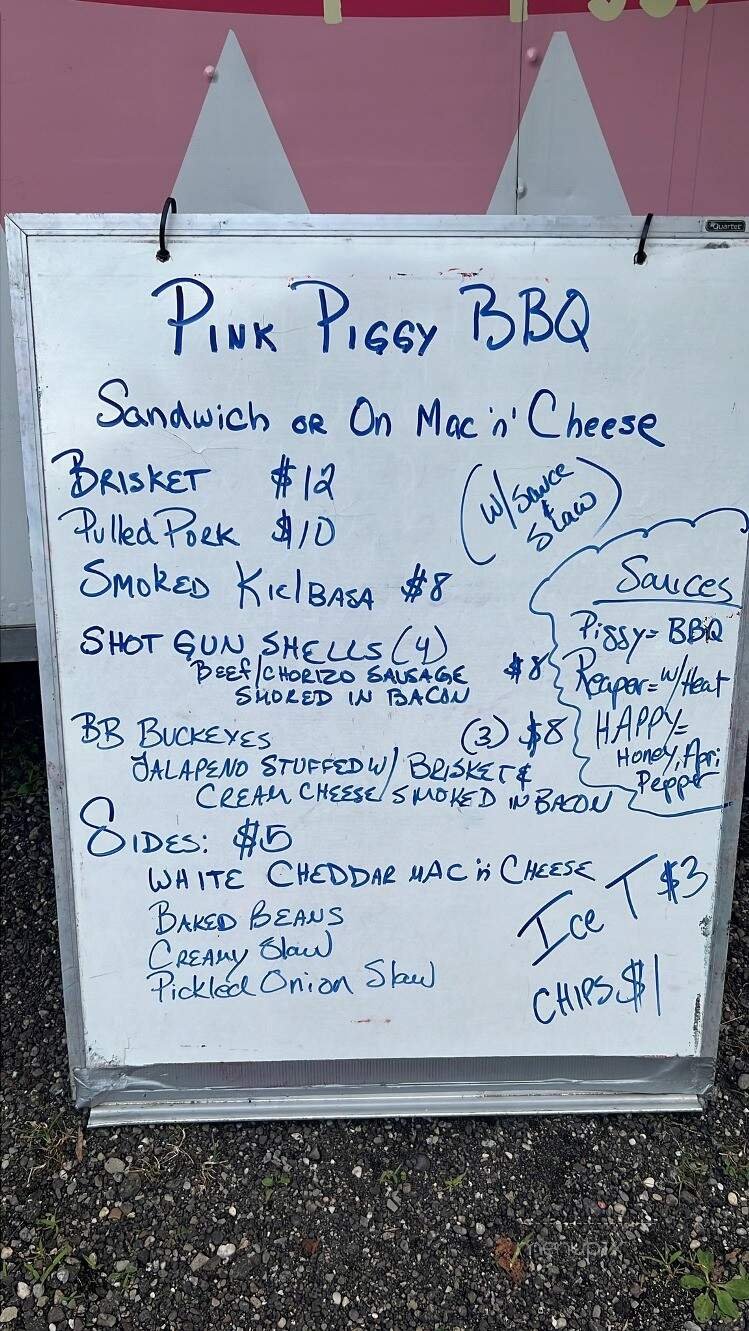 Quartet
PINK PIGGY BBQ
Sandwich OR On Mac 'n' Cheese
BRISKET $12
(w/ Sauce & Slaw)
Pulled Pork $10
SMOKED KielBASA $8
SHOT GUN SHELLS (4)
BEEF/CHORIZO SAUSAGE $8
SMOKED IN BACON
BB BUCKEYES (3) $8
JALAPENO STUFFED W/ BRISKET &
CREAM CHEESE/SMOKED IN BACON
Sauces
Piggy = BBQ
Reaper = w/ Heat
HAPPY =
Honey, Apri
Pepper
SIDES: $5
WHITE CHEDDAR MAC 'n' CHEESE
BAKED BEANS
CREAMY Slaw
Pickled Onion Slaw
Ice T $3
CHIPS $1
menupix